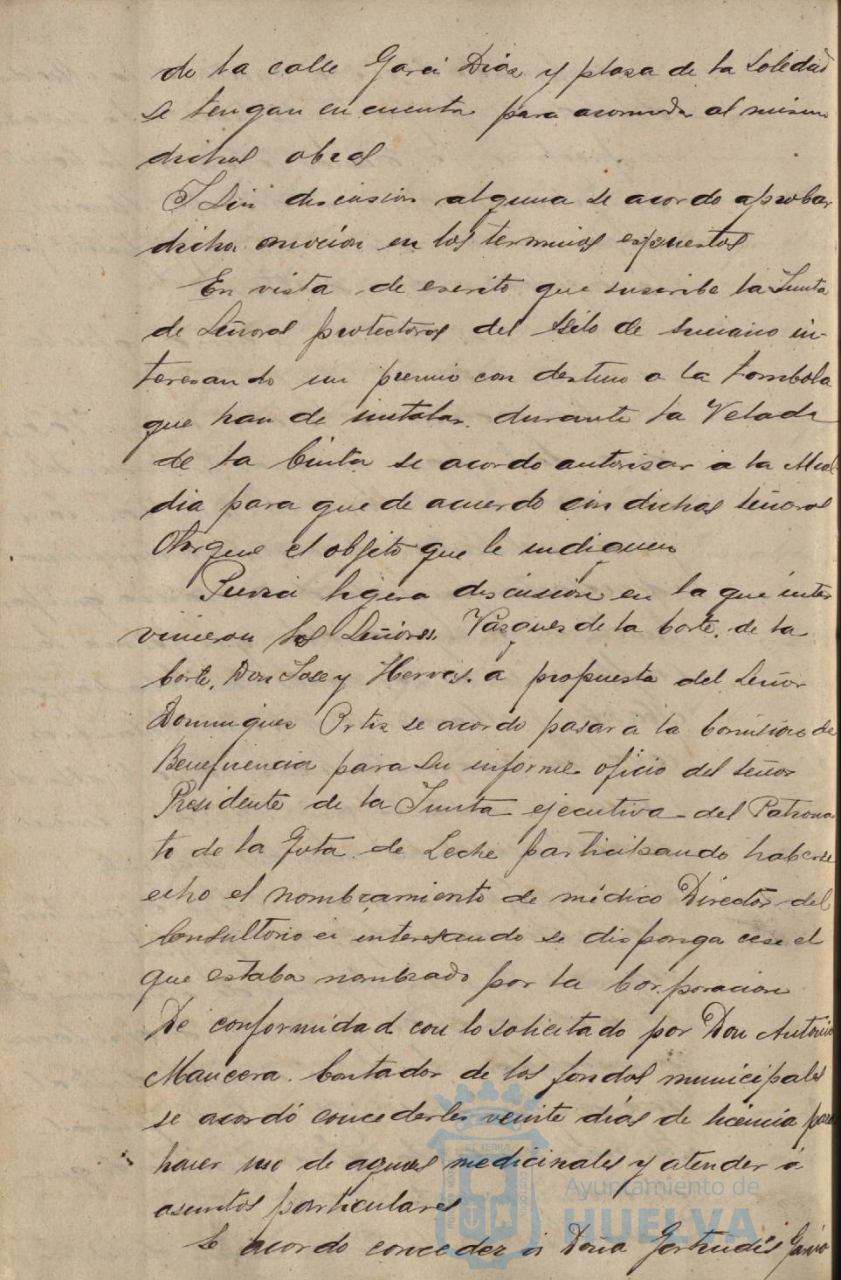 de la calle Garci Diaz y plaza de la Soledad
se tengan en cuenta para acomodar al mismo
dichas obras
Y sin discusion alguna se acordo aprobar
dicha mocion en los terminos expuestos
En vista de escrito que suscribe la Junta
de Señoras protectoras del Asilo de in-
teresando un premio con destino a la tombola
que han de instalar durante la Velada
de la Cinta se acordo autorisar a la Alcal
dia para que de acuerdo con dichas señoras
Otorgue el objeto que le indiquen
Previa ligera discusión en la que inter
vinieron los Señores Vazquez de la Corte, de la
Corte, Don Jose y Hervas, a propuesta del Señor
Dominguez Ortiz se acordo pasar a la Comision de
Beneficiencia para su informe oficio del señor
Presidente de la Junta ejecutiva del Patrona
to de la Gota de Leche participando haberse
echo el nombramiento de médico Director del
Consultorio e interesando se disponga cese el
que estaba nombrado por la Corporacion
De conformidad con lo solicitado por Don Antonio
Mancera Contador de los fondos municipales
se acordó concederle veinte días de licencia para
hacer uso de aguas medicinales y atender á
asuntos particulares
Se acordo conceder a Doña Gertrudis
Ayuntamiento de
HUELVA